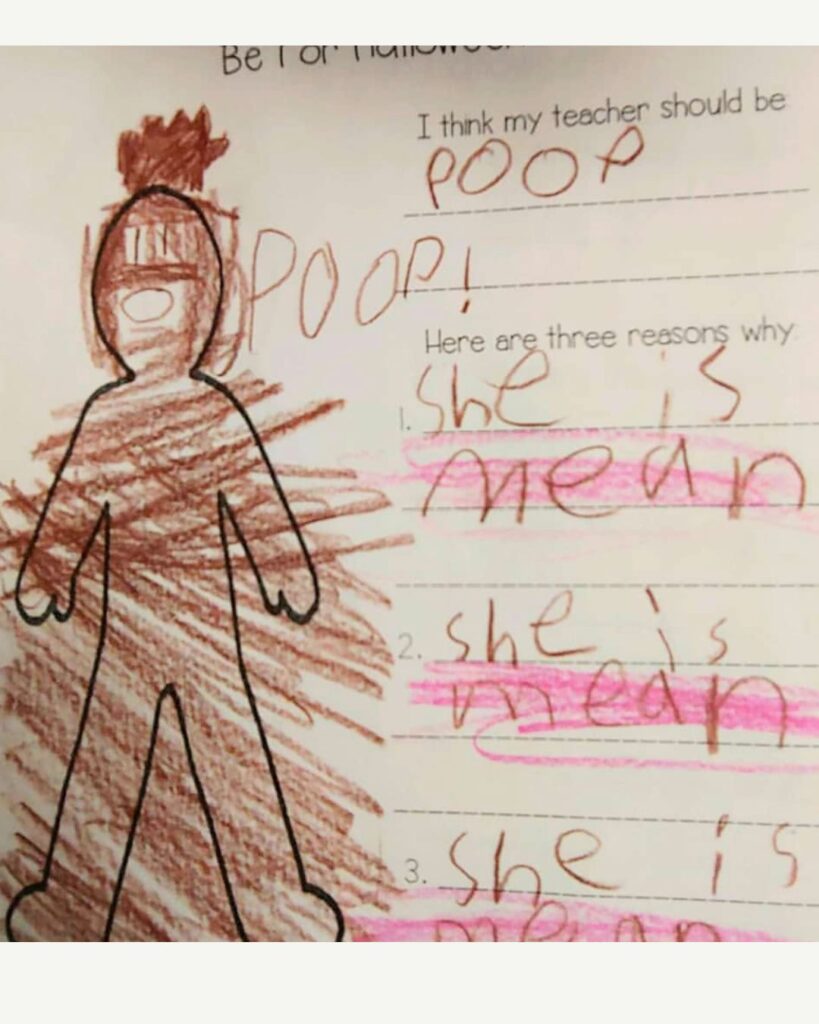 Be For Halloween
I think my teacher should be
POOP
POOP!
Here are three reasons why
1. She is
mean
2. She is
mean
3. She is
mean